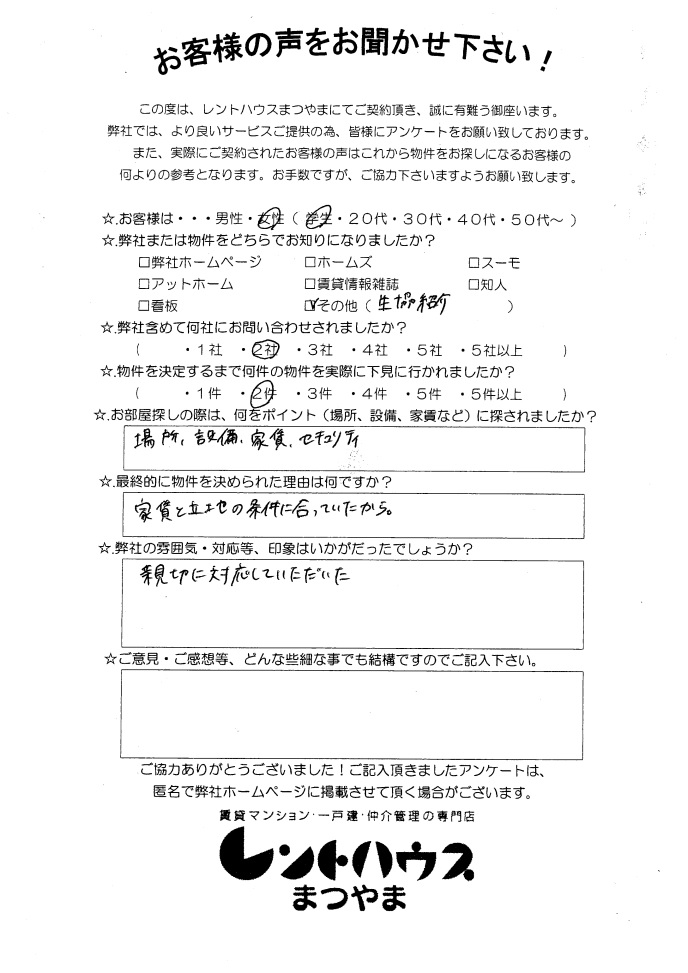 お客様の声をお聞かせ下さい！
この度は、レントハウスまつやまにてご契約頂き、誠に有難う御座います。
弊社では、より良いサービスご提供の為、皆様にアンケートをお願い致しております。
また、実際にご契約されたお客様の声はこれから物件をお探しになるお客様の
何よりの参考となります。お手数ですが、ご協力下さいますようお願い致します。
☆.お客様は・・・男性・女性（ 学生・２０代・３０代・４０代・５０代～ ）
☆.弊社または物件をどちらでお知りになりましたか？
□弊社ホームページ　□ホームズ　□スーモ
□アットホーム　□賃貸情報雑誌　□知人
□看板　☑その他（ 生協紹介 ）
☆.弊社含めて何社にお問い合わせされましたか？
（　・１社　・２社　・３社　・４社　・５社　・５社以上　）
☆.物件を決定するまで何件の物件を実際に下見に行かれましたか？
（　・１件　・２件　・３件　・４件　・５件　・５件以上　）
☆.お部屋探しの際は、何をポイント（場所、設備、家賃など）に探されましたか？
場所、設備、家賃、セキュリティ
☆.最終的に物件を決められた理由は何ですか？
家賃と立地の条件に合っていたから。
☆.弊社の雰囲気・対応等、印象はいかがだったでしょうか？
親切に対応していただいた
☆ご意見・ご感想等、どんな些細な事でも結構ですのでご記入下さい。
ご協力ありがとうございました！ご記入頂きましたアンケートは、
匿名で弊社ホームページに掲載させて頂く場合がございます。
賃貸マンション・一戸建・仲介管理の専門店
レントハウス
まつやま